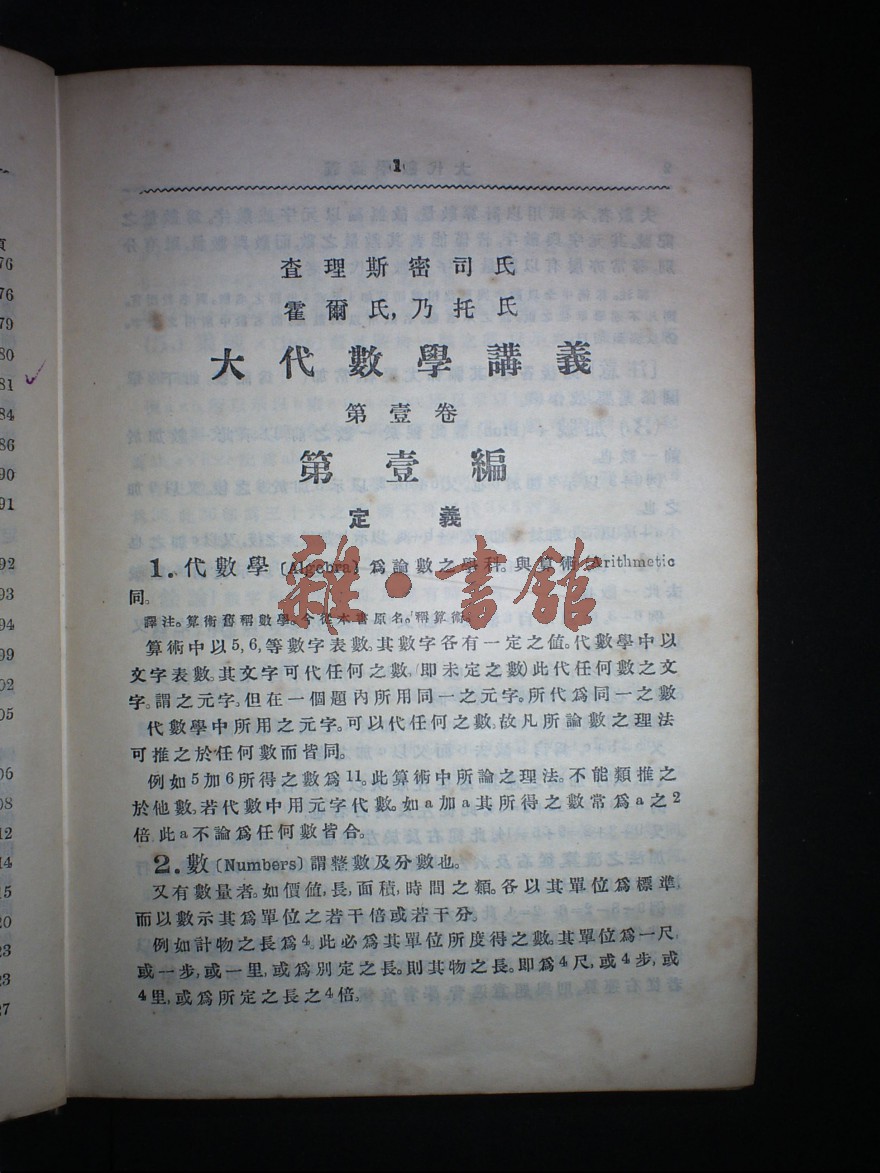 1
查理斯密司氏
霍爾氏,乃托氏
大代數學講義
第壹卷
第壹編
定義
1.代數學〔Algebra〕爲論數之學科。與算術〔Arithmetic
同。
譯注。算術舊稱數學。今從本書原名。稱算術。
算術中以5,6,等數字表數。其數字各有一定之值。代數學中以
文字表數。其文字可代任何之數,(即未定之數)此代任何數之文
字。謂之元字。但在一個題內所用同一之元字。所代爲同一之數
代數學中所用之元字。可以代任何之數,故凡所論數之理法
可推之於任何數而皆同。
例如5加6所得之數爲11。此算術中所論之理法。不能類推之
於他數,若代數中用元字代數。如a加a其所得之數常爲a之2
倍,此a不論爲任何數皆合。
2.數〔Numbers〕謂整數及分數也。
又有數量者。如價値,長,面積,時間之類。各以其單位爲標準,
而以數示其爲單位之若干倍或若干分。
例如計物之長爲4。此必爲其單位所度得之數。其單位爲一尺,
或一步,或一里,或爲別定之長。則其物之長。即爲4尺,或4步,或
4里,或爲所定之長之4倍。
雜·書館
頁
76
76
79
80
81
84
86
90
91
92
93
94
99
02
05
06
08
12
14
15
20
23
23
27